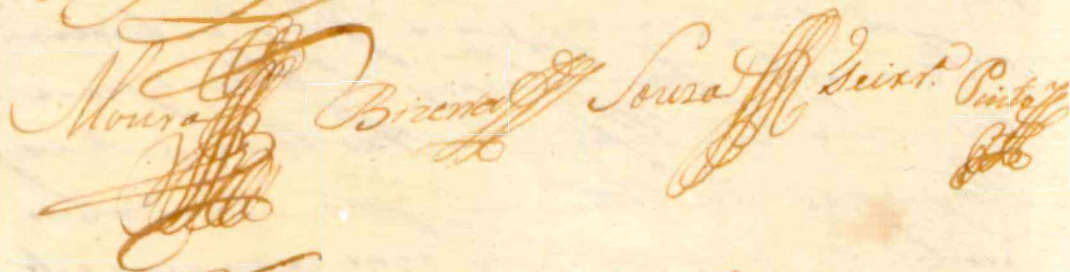 Moura Bizerra Souza Teixr.ª Pinto